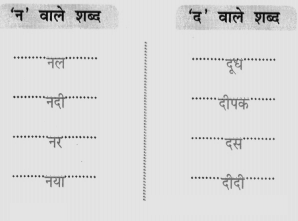 'न' वाले शब्द
नल
नदी
नर
नया
'द' वाले शब्द
दूध
दीपक
दस
दीदी